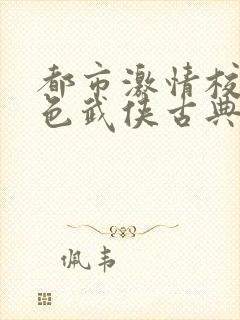 都市激情校
色武侠古典
佩韦